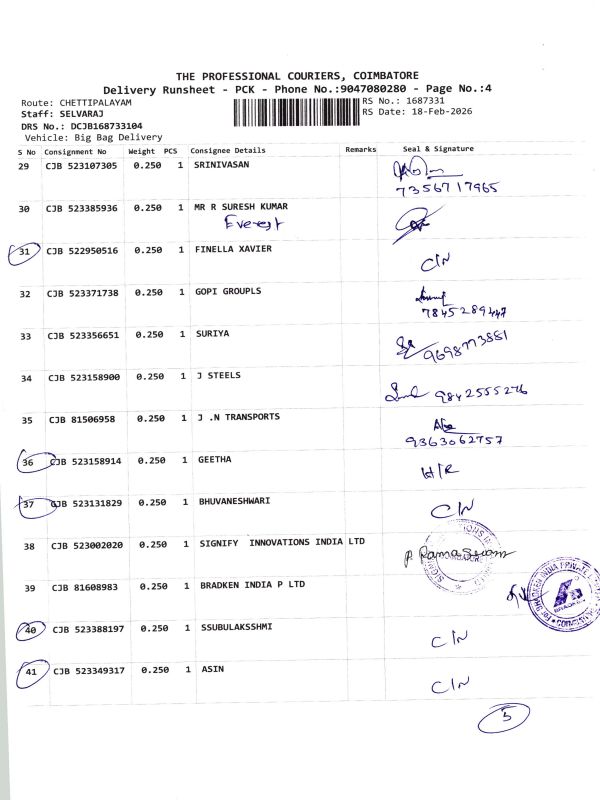 THE PROFESSIONAL COURIERS, COIMBATORE
Delivery Runsheet - PCK - Phone No.:9047080280 - Page No.:4
Route: CHETTIPALAYAM
RS No.: 1687331
Staff: SELVARAJ
RS Date: 18-Feb-2026
DRS No.: DCJB168733104
Vehicle: Big Bag Delivery
S No Consignment No Weight PCS Consignee Details Remarks Seal & Signature
29 CJB 523107305 0.250 1 SRINIVASAN
7356717965
30 CJB 523385936 0.250 1 MR R SURESH KUMAR
Everest
31 CJB 522950516 0.250 1 FINELLA XAVIER C/N
32 CJB 523371738 0.250 1 GOPI GROUPLS
7845289447
33 CJB 523356651 0.250 1 SURIYA
34 CJB 523158900 0.250 1 J STEELS 9842555276
35 CJB 81506958 0.250 1 J .N TRANSPORTS
9363062757
36 CJB 523158914 0.250 1 GEETHA
37 CJB 523131829 0.250 1 BHUVANESHWARI C/N
38 CJB 523002020 0.250 1 SIGNIFY INNOVATIONS INDIA LTD
39 CJB 81608983 0.250 1 BRADKEN INDIA P LTD
40 CJB 523388197 0.250 1 SSUBULAKSSHMI C/N
41 CJB 523349317 0.250 1 ASIN C/N
5